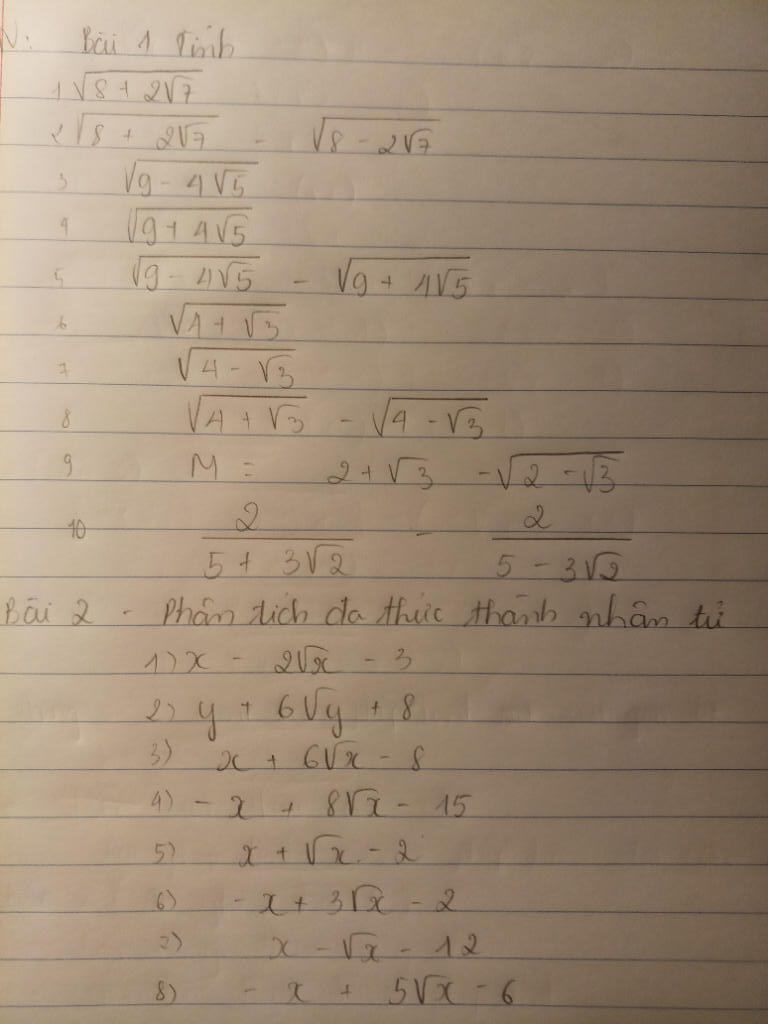 V: Bài 1 Tính
1 √(8 + 2√7)
2 √(8 + 2√7) - √(8 - 2√7)
3 √(9 - 4√5)
4 √(9 + 4√5)
5 √(9 - 4√5) - √(9 + 4√5)
6 √(4 + √3)
7 √(4 - √3)
8 √(4 + √3) - √(4 - √3)
9 M = 2 + √3 - √(2 - √3)
10 2/(5 + 3√2) - 2/(5 - 3√2)
Bài 2 - Phân tích đa thức thành nhân tử
1) x - 2√x - 3
2) y + 6√y + 8
3) x + 6√x - 8
4) - x + 8√x - 15
5) x + √x - 2
6) - x + 3√x - 2
7) x - √x - 12
8) - x + 5√x - 6